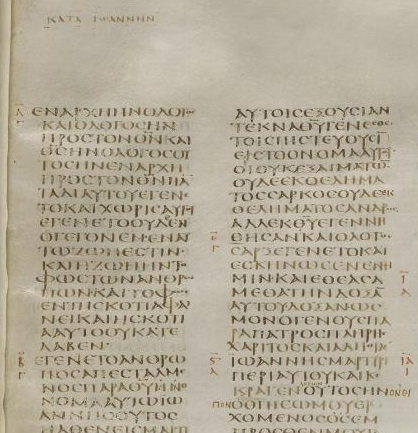 ΚΑΤΑ ΙΩΑΝΝΗΝ
ΕΝΑΡΧΗΗΝΟΛΟΓΟϹ
ΚΑΙΟΛΟΓΟϹΗΝ
ΠΡΟϹΤΟΝΘ̅Ν̅ΚΑΙ
Θ̅Ϲ̅ΗΝΟΛΟΓΟϹΟΥ
ΤΟϹΗΝΕΝΑΡΧΗ
ΠΡΟϹΤΟΝΘ̅Ν̅ΠΑ
ΤΑΔΙΑΥΤΟΥΕΓΕΝΕ
ΤΟΚΑΙΧΩΡΙϹΑΥΤΟΥ
ΕΓΕΝΕΤΟΟΥΔΕΝ
ΟΓΕΓΟΝΕΝΕΝΑΥ
ΤΩΖΩΗΕϹΤΙΝ
ΚΑΙΗΖΩΗΗΝΤΟ
ΦΩϹΤΩΝΑΝΘΡΩ
ΠΩΝΚΑΙΤΟΦΩϹ
ΕΝΤΗϹΚΟΤΙΑΦΑΙ
ΝΕΙΚΑΙΗϹΚΟΤΙ
ΑΑΥΤΟΟΥΚΑΤΕ
ΛΑΒΕΝ
ΕΓΕΝΕΤΟΑΝΘΡΩ
ΠΟϹΑΠΕϹΤΑΛΜΕ
ΝΟϹΠΑΡΑΘ̅Υ̅ΗΝΟ
ΝΟΜΑΑΥΤΩΙΩ
ΑΝΝΗϹΟΥΤΟϹ
ΗΛΘΕΝΕΙϹΜΑΡΤΥ
ΑΥΤΟΙϹΕΞΟΥϹΙΑΝ
ΤΕΚΝΑΘ̅Υ̅ΓΕΝΕϹΘΑΙ
ΤΟΙϹΠΙϹΤΕΥΟΥϹΙ
ΕΙϹΤΟΟΝΟΜΑΑΥΤΟΥ
ΟΙΟΥΚΕΞΑΙΜΑΤΩ
ΟΥΔΕΕΚΘΕΛΗΜΑ
ΤΟϹϹΑΡΚΟϹΟΥΔΕΕΚ
ΘΕΛΗΜΑΤΟϹΑΝΔΡΟϹ
ΑΛΛΕΚΘ̅Υ̅ΕΓΕΝΝΗ
ΘΗϹΑΝΚΑΙΟΛΟΓΟϹ
ϹΑΡΞΕΓΕΝΕΤΟΚΑΙ
ΕϹΚΗΝΩϹΕΝΕΝΗ
ΜΙΝΚΑΙΕΘΕΑϹΑ
ΜΕΘΑΤΗΝΔΟΞΑ
ΑΥΤΟΥΔΟΞΑΝΩϹ
ΜΟΝΟΓΕΝΟΥϹΠΑ
ΡΑΠΑΤΡΟϹΠΛΗΡΗϹ
ΧΑΡΙΤΟϹΚΑΙΑΛΗΘΙ
ΙΩΑΝΝΗϹΜΑΡΤΥΡΙ
ΠΕΡΙΑΥΤΟΥΚΑΙΚΕ
ΚΡΑΓΕΝΟΥΤΟϹΗΝ
ΟΟΠΙϹΩΜΟΥΕΡ
ΧΟΜΕΝΟϹΟϹΕΜ
ΠΡΟϹΘΕΝΜΟΥΓΕ